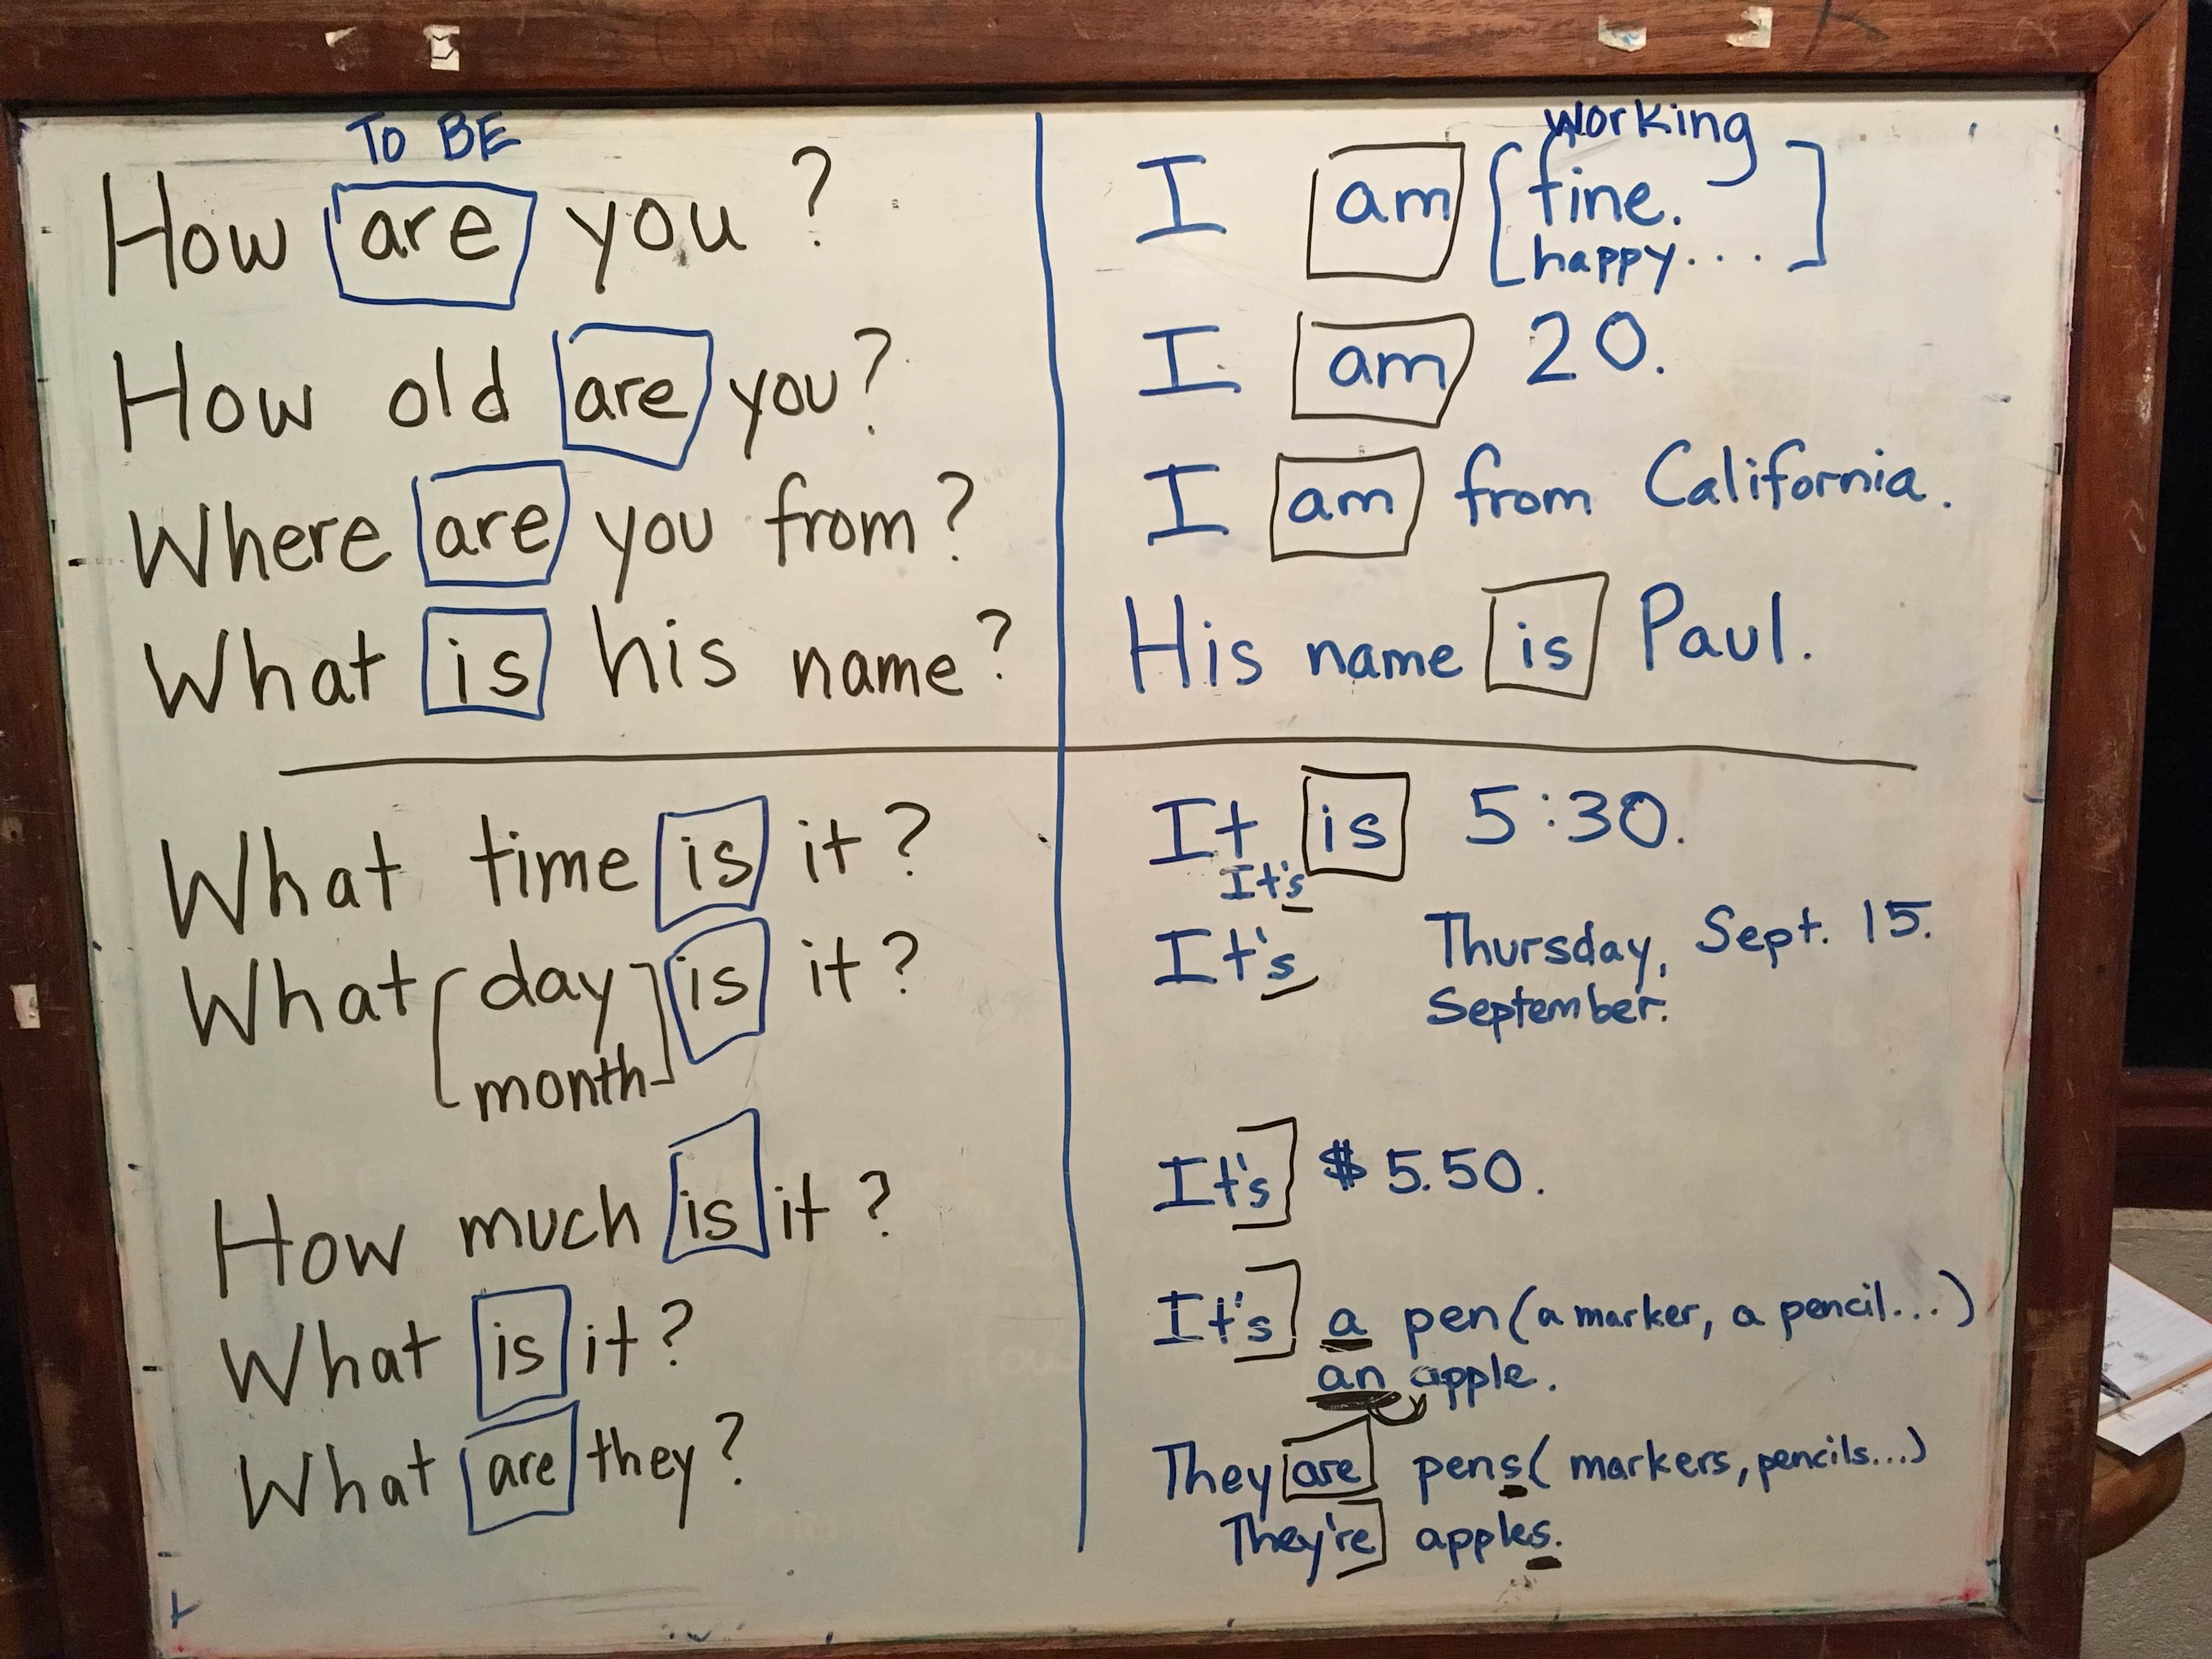 TO BE
How are you?
How old are you?
Where are you from?
What is his name?
What time is it?
What [day] is it?
month
How much is it?
What is it?
What are they?
working
I am [fine.]
happy...
I am 20.
I am from California.
His name is Paul.
It is 5:30.
It's
It's Thursday, Sept. 15.
September.
It's $5.50.
It's a pen (a marker, a pencil...)
an apple.
They are pens (markers, pencils...)
They're apples.